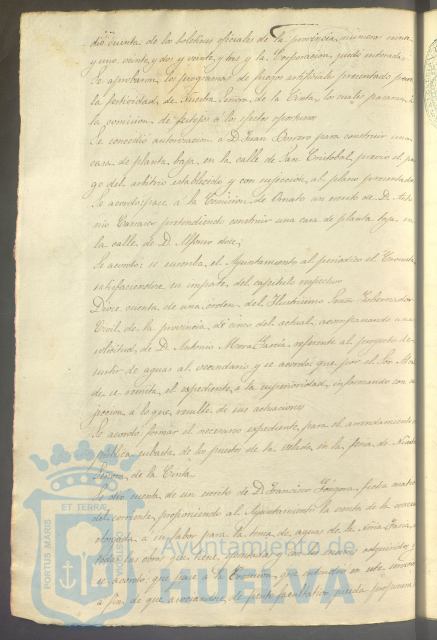 dió cuenta de los boletines oficiales de la provincia, números veinte
y uno, veinte y dos y veinte y tres y la Corporacion, quedó enterada.
Se aprobaron los programas de fuegos artificiales presentado para
la festividad de Nuestra Señora de la Cinta, los cuales pasaran á
la comision de festejos a los efectos oportunos
Se concedió autorizacion a D. Juan Borrero para construir una
casa de planta baja en la calle de San Cristobal, previo el pa-
go del arbitrio establecido y con sujeccion al plano presentado
Se acordó pase á la Comision de Ornato un escrito de D. Anto
nio Carrasco pretendiendo construir una casa de planta baja en
la calle de D. Alfonso doce;
Se acordó: se suscriba el Ayuntamiento al periodico el
satisfaciendose su importe del capitulo respectivo
Diose cuenta de una orden del Ilustrisimo Señor Gobernador
Civil de la provincia de cinco del actual, acompañando una
solicitud de D. Antonio Mora Garcia, referente al proyecto de
surtir de aguas al vecindario y se acordó: que por el Sor. Alcal
de se remita el expediente a la superioridad, informando con su
peccion á lo que resulte de sus actuaciones
Se acordó formar el necesario expediente para el arrendamiento en
pública subasta de los puestos de la velada en la feria de Nuestra
Señora de la Cinta
Se dió cuenta de un escrito de D. Francisco Jóngora, fecha cuatro
del corriente, proponiendo al Ayuntamiento la venta de la
otorgada a su favor para la toma de aguas de la
todas las obras que tiene, terrenos y demas
se acordó: que pase á la Comision que entiende en este servicio
a fin de que asociandose de perito facultativo pueda proponer
PORTUS MARIS
ET TERRAE
CUSTODIA
Ayuntamiento de
HUELVA